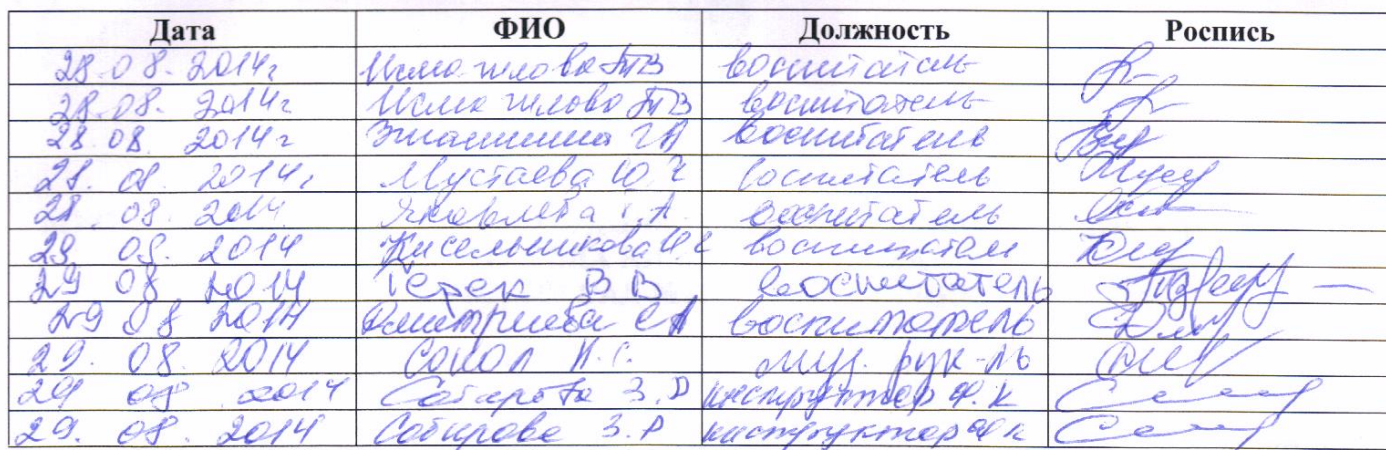 Дата ФИО Должность Роспись
28.08.2014г воспитатель
28.08.2014г воспитатель
28.08.2014г воспитатель
28.08.2014г Мустаева Ю.Ч воспитатель
28.08.2014 воспитатель
29 08. 2014 Кисельникова воспитатель
29 08 2014 Терек В В воспитатель
29 08 2014 Дмитриева СА воспитатель
29. 08. 2014 Сокол И.С. муз. рук-ль
29 08 2014 Сабирова З.Р инструктор ф.к
29. 08. 2014 Сабирова З.Р инструктор ф к